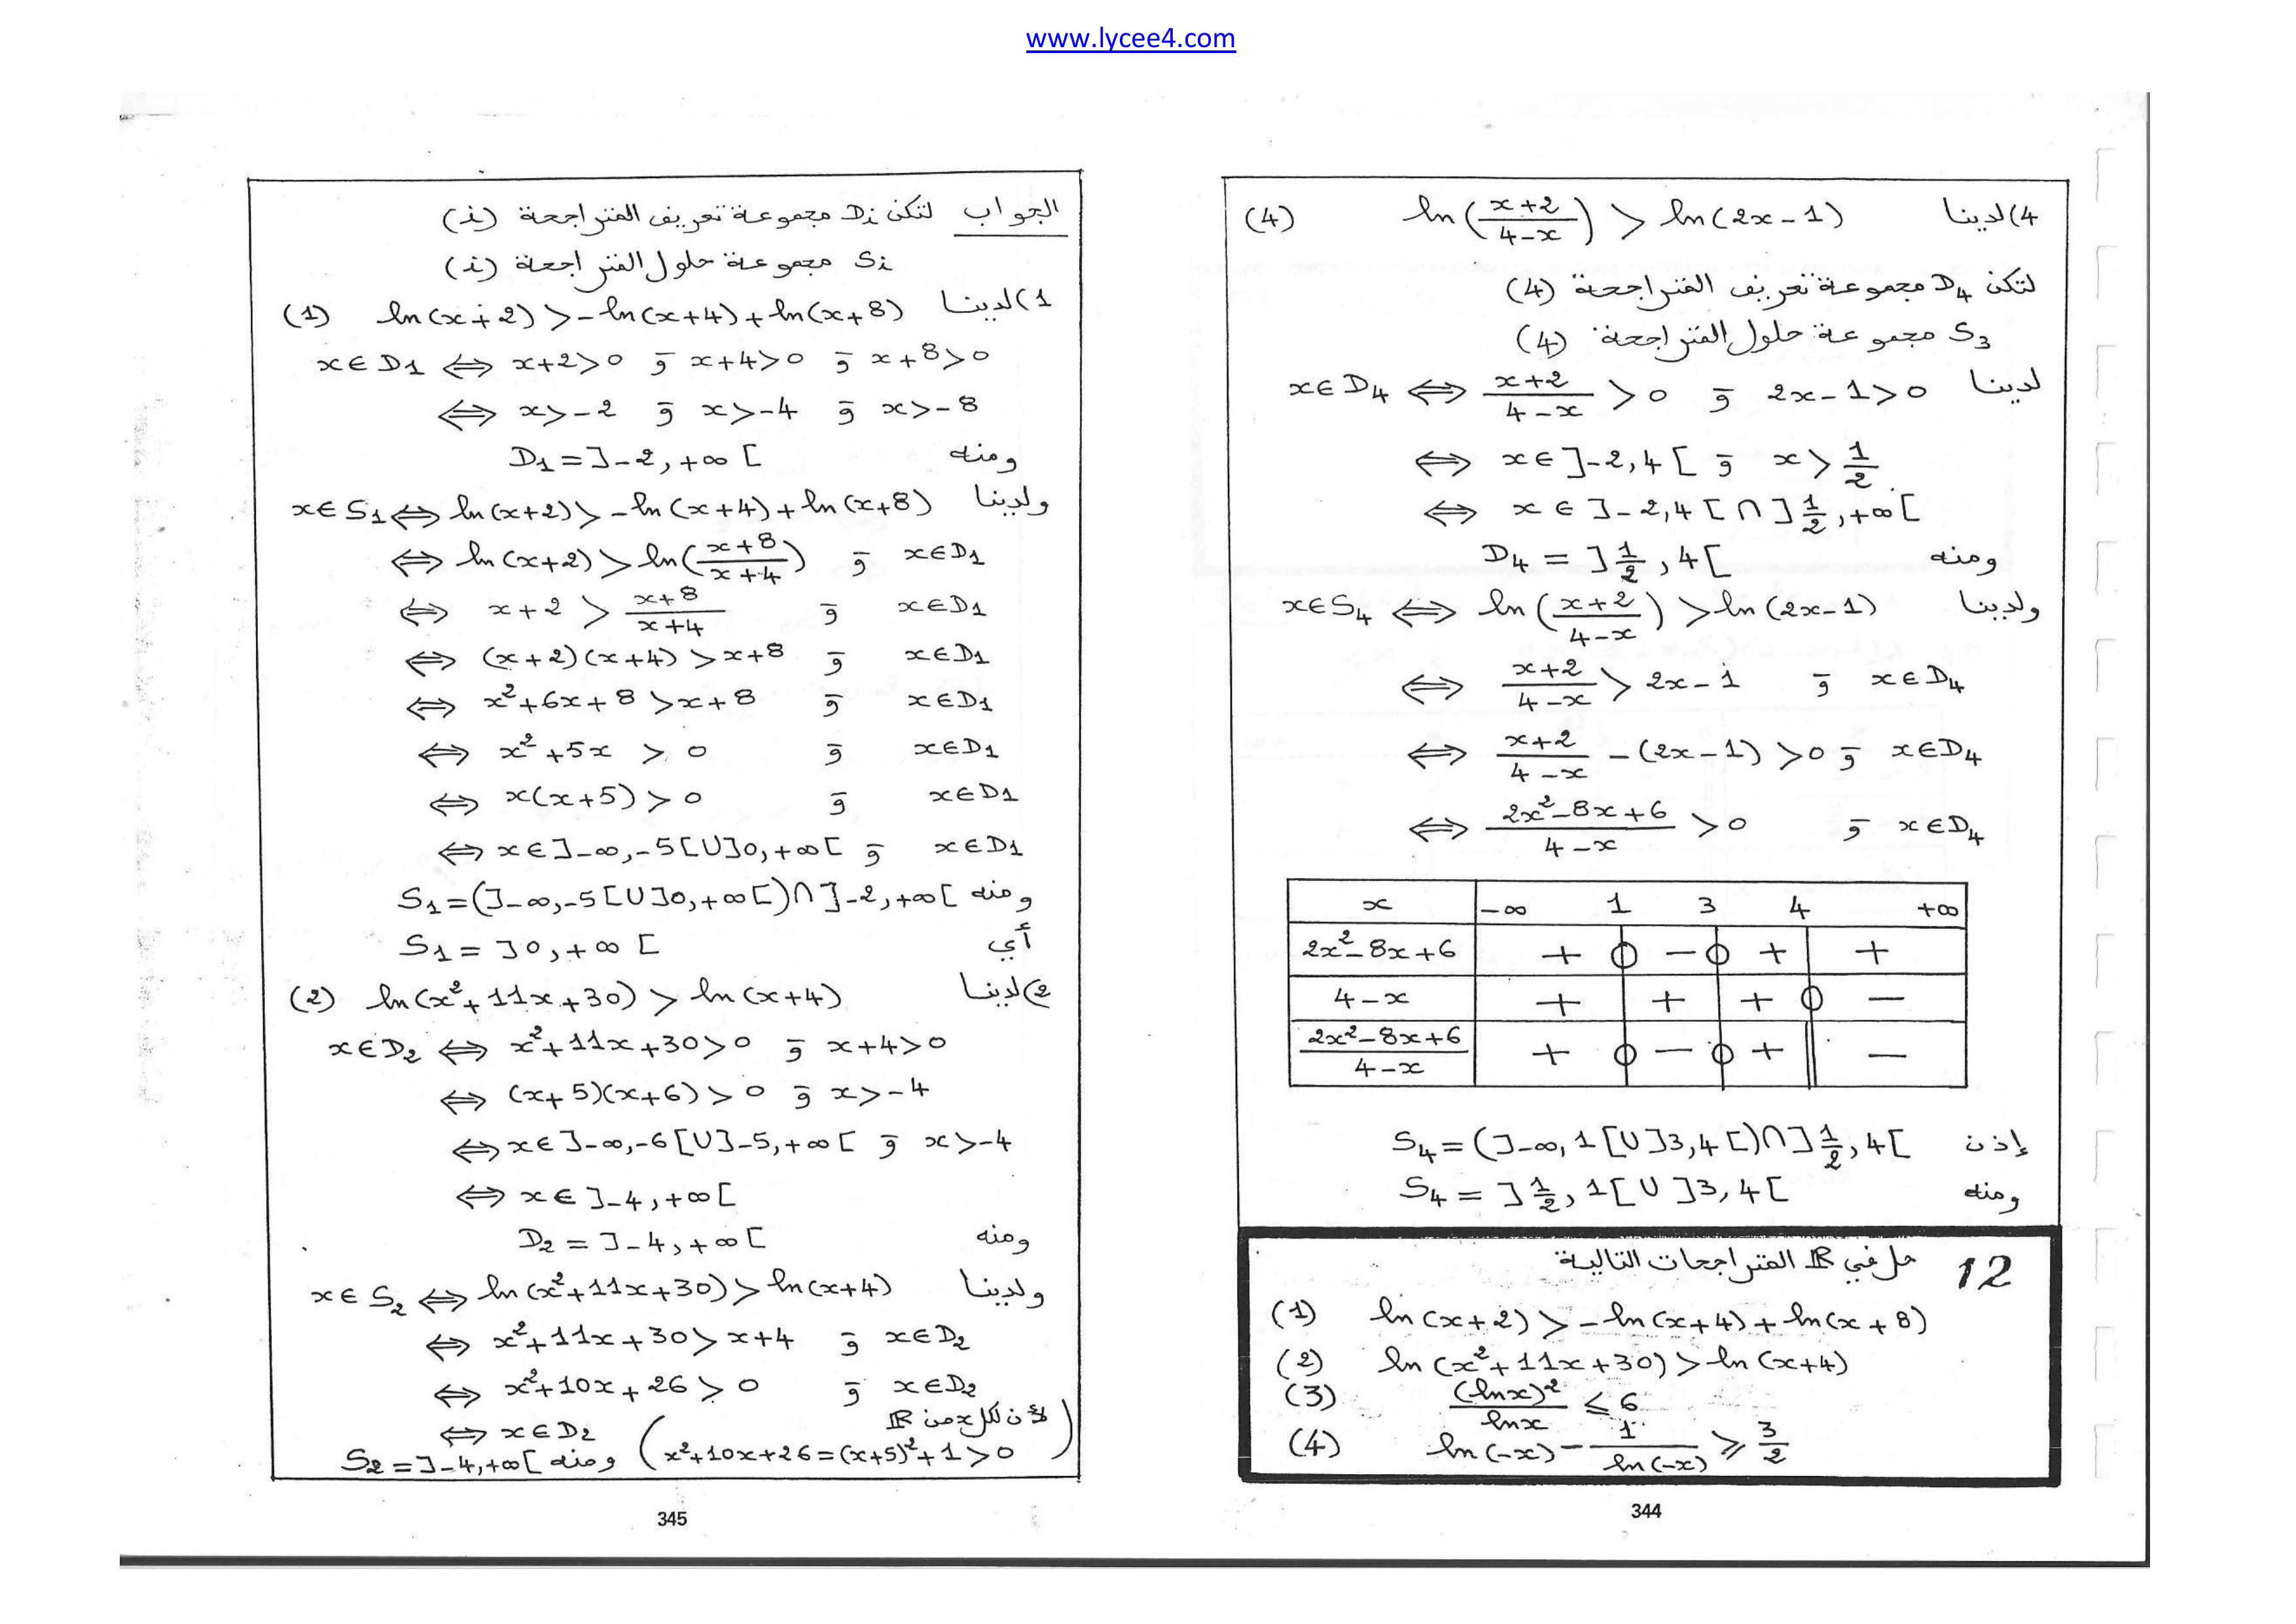 www.lycee4.com
4) لدينا ln((x+2)/(4-x)) > ln(2x-1) (4)
لتكن D₄ مجموعة تعريف المتراجحة (4)
S₃ مجموعة حلول المتراجحة (4)
لدينا x∈D₄ ⇔ (x+2)/(4-x) > 0 و 2x-1>0
⇔ x∈]-2,4[ و x > 1/2
⇔ x∈]-2,4[ ∩ ]1/2,+∞[
ومنه D₄ = ]1/2,4[
ولدينا x∈S₄ ⇔ ln((x+2)/(4-x)) > ln(2x-1)
⇔ (x+2)/(4-x) > 2x-1 و x∈D₄
⇔ (x+2)/(4-x) - (2x-1) > 0 و x∈D₄
⇔ (2x²-8x+6)/(4-x) > 0 و x∈D₄
x -∞ 1 3 4 +∞
2x²-8x+6 + 0 - 0 + +
4-x + + + 0 -
(2x²-8x+6)/(4-x) + 0 - 0 + || -
إذن S₄ = (]-∞,1[∪]3,4[)∩]1/2,4[
ومنه S₄ = ]1/2,1[ ∪ ]3,4[
12 حل في ℝ المتراجحات التالية
(1) ln(x+2) > -ln(x+4)+ln(x+8)
(2) ln(x²+11x+30) > ln(x+4)
(3) (lnx)²/lnx ≤ 6
(4) ln(-x) - 1/ln(-x) ≥ 3/2
344
الجواب لتكن Di مجموعة تعريف المتراجحة (i)
Si مجموعة حلول المتراجحة (i)
1) لدينا ln(x+2) > -ln(x+4)+ln(x+8) (1)
x∈D₁ ⇔ x+2>0 و x+4>0 و x+8>0
⇔ x>-2 و x>-4 و x>-8
ومنه D₁ = ]-2,+∞[
ولدينا x∈S₁ ⇔ ln(x+2) > -ln(x+4)+ln(x+8)
⇔ ln(x+2) > ln((x+8)/(x+4)) و x∈D₁
⇔ x+2 > (x+8)/(x+4) و x∈D₁
⇔ (x+2)(x+4) > x+8 و x∈D₁
⇔ x²+6x+8 > x+8 و x∈D₁
⇔ x²+5x > 0 و x∈D₁
⇔ x(x+5) > 0 و x∈D₁
⇔ x∈]-∞,-5[∪]0,+∞[ و x∈D₁
ومنه S₁ = (]-∞,-5[∪]0,+∞[)∩]-2,+∞[
أي S₁ = ]0,+∞[
2) لدينا ln(x²+11x+30) > ln(x+4) (2)
x∈D₂ ⇔ x²+11x+30>0 و x+4>0
⇔ (x+5)(x+6)>0 و x>-4
⇔ x∈]-∞,-6[∪]-5,+∞[ و x>-4
⇔ x∈]-4,+∞[
ومنه D₂ = ]-4,+∞[
ولدينا x∈S₂ ⇔ ln(x²+11x+30) > ln(x+4)
⇔ x²+11x+30 > x+4 و x∈D₂
⇔ x²+10x+26 > 0 و x∈D₂
⇔ x∈D₂ (لأن لكل x من ℝ
x²+10x+26=(x+5)²+1>0) ومنه S₂=]-4,+∞[
345